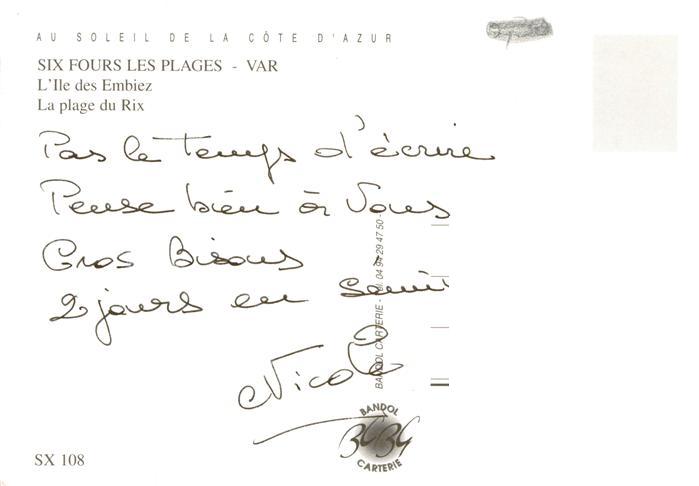 AU SOLEIL DE LA CÔTE D'AZUR
SIX FOURS LES PLAGES - VAR
L'Ile des Embiez
La plage du Rix
Pas le temps d'écrire
Pense bien à Vous
Gros Bisous
2 jours en
Nicole
BANDOL CARTERIE - Tél. 04 94 29 47 50 -
BANDOL
BCBG
CARTERIE
SX 108